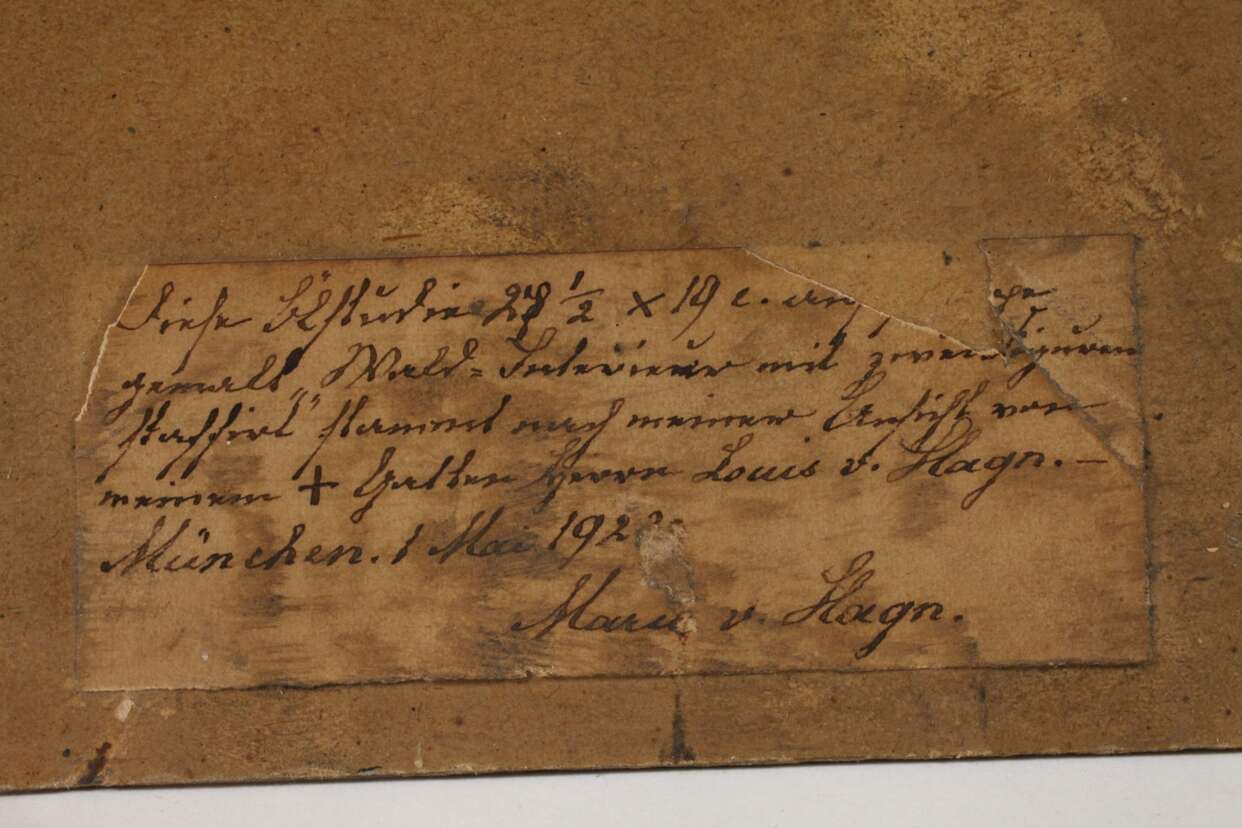 Diese Ölstudie 28 1/2 × 19 c. auf
gemalt „Wald=Interieur mit zwei Figuren
staffirt" stammt nach meiner Ansicht von
meinem + Gatten Herrn Louis v. Hagn. –
München. 1 Mai 192
Marie v. Hagn.